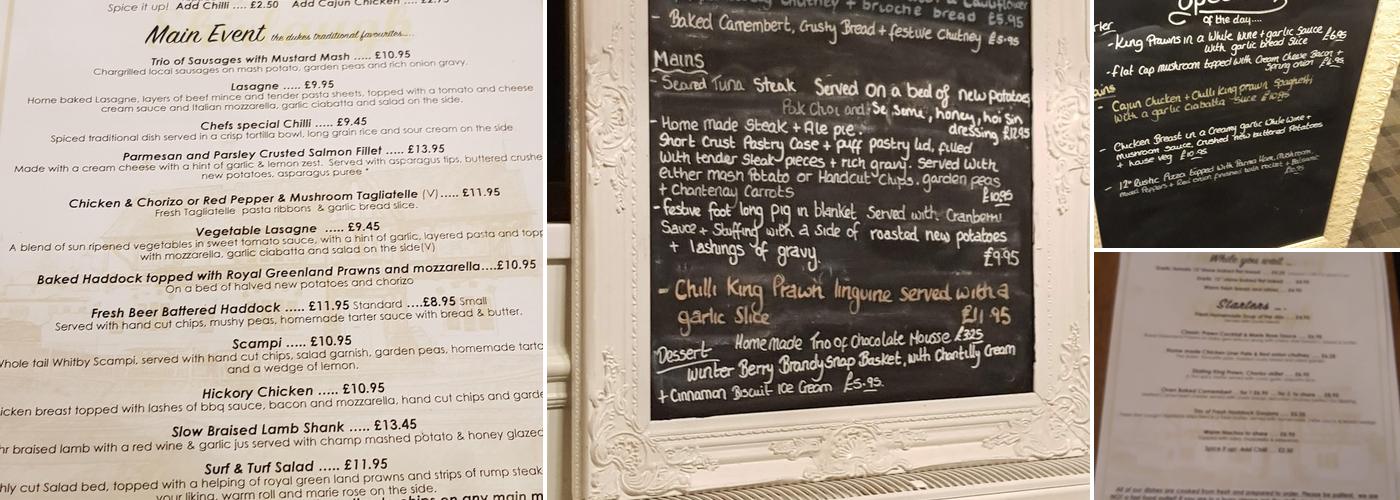 Spice it up! Add Chilli .... £2.50 Add Cajun Chicken ....
Main Event the dukes traditional favourites....
Trio of Sausages with Mustard Mash ..... £10.95
Chargrilled local sausages on mash potato, garden peas and rich onion gravy.
Lasagne ...... £9.95
Home baked Lasagne, layers of beef mince and tender pasta sheets, topped with a tomato and cheese
cream sauce and Italian mozzarella, garlic ciabatta and salad on the side.
Chefs special Chilli .... £9.45
Spiced traditional dish served in a crisp tortilla bowl, long grain rice and sour cream on the side
Parmesan and Parsley Crusted Salmon Fillet ..... £13.95
Made with a cream cheese with a hint of garlic & lemon zest. Served with asparagus tips, buttered crushe
new potatoes, asparagus puree *
Chicken & Chorizo or Red Pepper & Mushroom Tagliatelle (V).... £11.95
Fresh Tagliatelle pasta ribbons & garlic bread slice.
Vegetable Lasagne ..... £9.45
A blend of sun ripened vegetables in sweet tomato sauce, with a hint of garlic, layered pasta and topp
with mozzarella, garlic ciabatta and salad on the side(V)
Baked Haddock topped with Royal Greenland Prawns and mozzarella....£10.95
On a bed of halved new potatoes and chorizo
Fresh Beer Battered Haddock ..... £11.95 Standard ....£8.95 Small
Served with hand cut chips, mushy peas, homemade tarter sauce with bread & butter.
Scampi .... £10.95
Whole tail Whitby Scampi, served with hand cut chips, salad garnish, garden peas, homemade tarta
and a wedge of lemon.
Hickory Chicken .... £10.95
icken breast topped with lashes of bbq sauce, bacon and mozzarella, hand cut chips and garde
Slow Braised Lamb Shank .... £13.45
hr braised lamb with a red wine & garlic jus served with champ mashed potato & honey glazed
Surf & Turf Salad .... £11.95
hly cut Salad bed, topped with a helping of royal green land prawns and strips of rump steak
your liking, warm roll and marie rose on the side.
chips on any main m
chutney + brioche bread £5.95
- Baked Camembert, Crusty Bread + festive Chutney £5.95
Mains
- Seared Tuna Steak Served on a bed of new potatoes
Pak Choi and Sesame, honey, hoi Sin
dressing £12.95
- Home made Steak + Ale pie.
Short Crust Pastry Case + puff pastry lid, filled
with tender Steak pieces + rich gravy. Served with
either mash Potato or Handcut Chips. garden peas
+ chantenay Carrots £10.95
- festive foot long pig in blanket Served with Cranberry
Sauce + Stuffing with a side of roasted new potatoes
+ lashings of gravy. £9.95
- Chilli King Prawn linguine served with a
garlic slice £11.95
Dessert Homemade Trio of Chocolate Mousse £3.25
Winter Berry Brandysnap Basket, with Chantilly Cream
+ Cinnamon Biscuit Ice Cream £5.95
of the day....
- King Prawns in a White Wine + garlic Sauce £6.95
with garlic bread Slice
- flat Cap mushroom topped with Cream Cheese Bacon +
Spring onion
ains
- Cajun Chicken + Chilli King prawn Spaghetti
with a garlic Ciabatta Slice £10.95
- Chicken Breast in a Creamy garlic White Wine +
mushroom Sauce, Crushed new buttered Potatoes
+ house veg £10.95
- 12" Rustic Pizza topped with Parma Ham, Mushroom,
Peppers + Red onion finished with rocket + Balsamic
While you wait ...
Starters ...